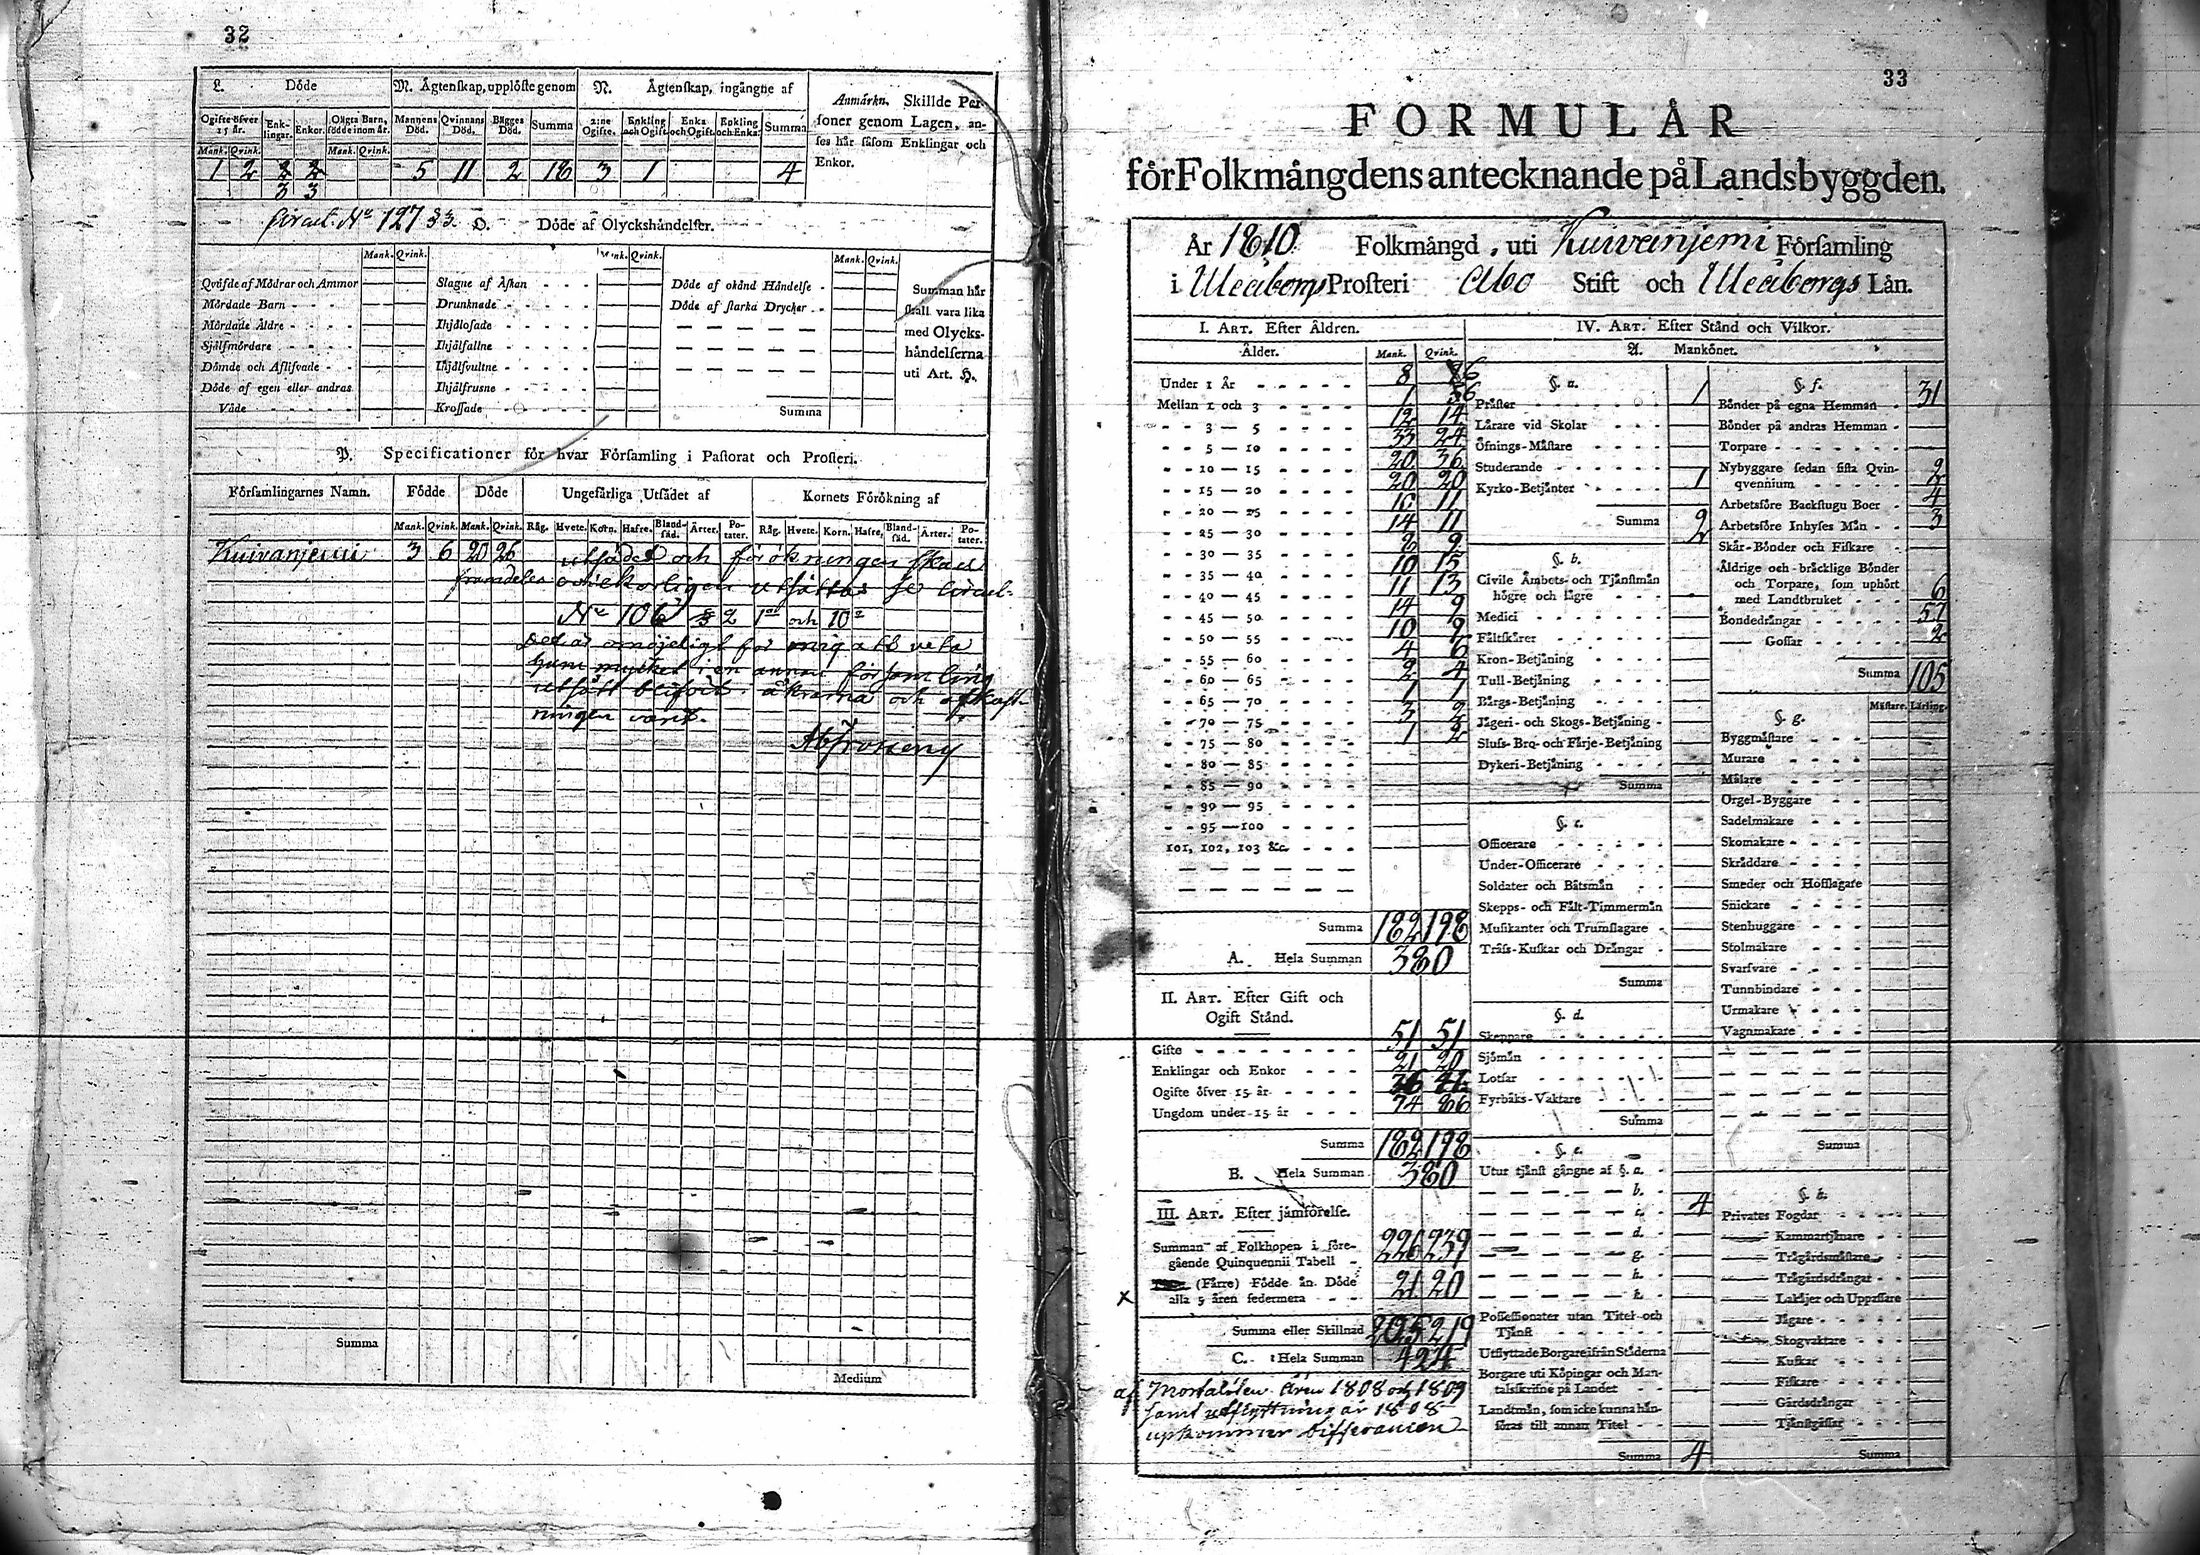 32
L. Döde
M. Ägtenskap, upplöste genom
N. Ägtenskap, ingångne af
Anmärkn. Skillde Personer genom Lagen, anses här såsom Enklingar och Enkor.
Ogifte öfver 15 år. Enklingar. Enkor. Ogifta Barn, födde inom år.
Mannens Död. Qvinnans Död. Bägges Död. Summa
2:ne Ogifte. Enkling och Ogift. Enka och Ogift. Enkling och Enka. Summa
Mank. Qvink. Mank. Qvink.
1 2 2 2 5 11 2 18 3 1 4
3 3
Circul. No 127 § 3. O. Döde af Olyckshändelser.
Mank. Qvink. Mank. Qvink. Mank. Qvink.
Qväfde af Mödrar och Ammor
Mördade Barn
Mördade Äldre
Självmördare
Dömde och Aflifvade
Döde af egen eller andras
Våde
Slagne af Åskan
Drunknade
Ihjälosade
Ihjälfallne
Ihjälsvultne
Ihjälfrusne
Krossade
Döde af okänd Händelse
Döde af starka Drycker
Summa
Summan här
skall vara lika
med Olycks-
händelserna
uti Art. H.
P. Specificationer för hvar Församling i Pastorat och Prosteri.
Församlingarnes Namn. Födde Döde Ungefärliga Utsädet af Kornets Förökning af
Mank. Qvink. Mank. Qvink. Råg. Hvete. Korn. Hafre. Blandsäd. Ärter. Potater. Råg. Hvete. Korn. Hafre. Blandsäd. Ärter. Potater.
Kuivanjemi 3 6 20 26 utsädet och förökningen skall
framdeles ovilkorligen utsättas se Circul.
No 106 § 2 1o och 10o
Det är omöjeligt för mig att veta
huru mycket i en annan församling
utsått blifvit i åkrarna och afkast-
ningen varit.
Summa
Medium
33
FORMULÄR
för Folkmängdens antecknande på Landsbyggden.
År 1810. Folkmängd, uti Kuivanjemi Församling
i Uleåborgs Prosteri Åbo Stift och Uleåborgs Län.
I. ART. Efter Åldren.
Ålder. Mank. Qvink.
Under 1 År 8 6
Mellan 1 och 3 1 6
3 — 5 12 14
5 — 10 33 24
10 — 15 20 36
15 — 20 20 20
20 — 25 18 11
25 — 30 14 11
30 — 35 8 9
35 — 40 10 15
40 — 45 11 13
45 — 50 14 9
50 — 55 10 9
55 — 60 4 6
60 — 65 2 4
65 — 70 1 1
70 — 75 3 2
75 — 80 1 2
80 — 85
85 — 90
90 — 95
95 — 100
101, 102, 103 &c.
Summa 182 198
A. Hela Summan 380
II. ART. Efter Gift och
Ogift Stånd.
Gifte 51 51
Enklingar och Enkor 21 20
Ogifte öfver 15 år 36 41
Ungdom under 15 år 74 86
Summa 182 198
B. Hela Summan 380
III. ART. Efter jämförelse.
Summan af Folkhopen i före-
gående Quinquennii Tabell 226 239
(Färre) Födde än Döde
x alla 5 åren sedermera 21 20
Summa eller Skillnad 205 219
C. Hela Summan 424
af Mortaliten åren 1808 och 1809
samt utflyttning år 1808
upkommer differancen
IV. ART. Efter Stånd och Vilkor.
A. Mankönet.
§. a.
Präster 1
Lärare vid Skolar
Öfnings-Mästare
Studerande
Kyrko-Betjänter 1
Summa 2
§. b.
Civile Ämbets- och Tjänstmän
högre och lägre
Medici
Fältskärer
Kron-Betjäning
Tull-Betjäning
Bärgs-Betjäning
Jägeri- och Skogs-Betjäning
Sluss- Bro- och Färje-Betjäning
Dykeri-Betjäning
Summa
§. c.
Officerare
Under-Officerare
Soldater och Båtsmän
Skepps- och Fält-Timmermän
Musikanter och Trumslagare
Träss-Kuskar och Drängar
Summa
§. d.
Skeppare
Sjömän
Lotsar
Fyrbåks-Vaktare
Summa
§. e.
Utur tjänst gångne af §. a.
b.
c. 4
d.
g.
h.
Possessionater utan Titel och
Tjänst
Utflyttade Borgare ifrån Städerna
Borgare uti Köpingar och Man-
talsskrifne på Landet
Landtmän, som icke kunna hän-
föras till annan Titel
Summa 4
§. f.
Bönder på egna Hemman 31
Bönder på andras Hemman
Torpare
Nybyggare sedan sista Qvin-
qvennium 2
Arbetsföre Backstugu Boer 4
Arbetsföre Inhyses Män 3
Skär-Bönder och Fiskare
Äldrige och bräcklige Bönder
och Torpare, som uphört
med Landtbruket 6
Bondedrängar 57
Gossar 2
Summa 105
§. g. Mästare. Lärling.
Byggmästare
Murare
Målare
Orgel-Byggare
Sadelmakare
Skomakare
Skräddare
Smeder och Hofslagare
Snickare
Stenhuggare
Stolmakare
Svarfvare
Tunnbindare
Urmakare
Vagnmakare
Summa
§. h.
Privates Fogdar
Kammartjänare
Trägårdsmästare
Trägårdsdrängar
Lakajer och Uppassare
Jägare
Skogvaktare
Kuskar
Fiskare
Gårdsdrängar
Tjänstgossar
Summa